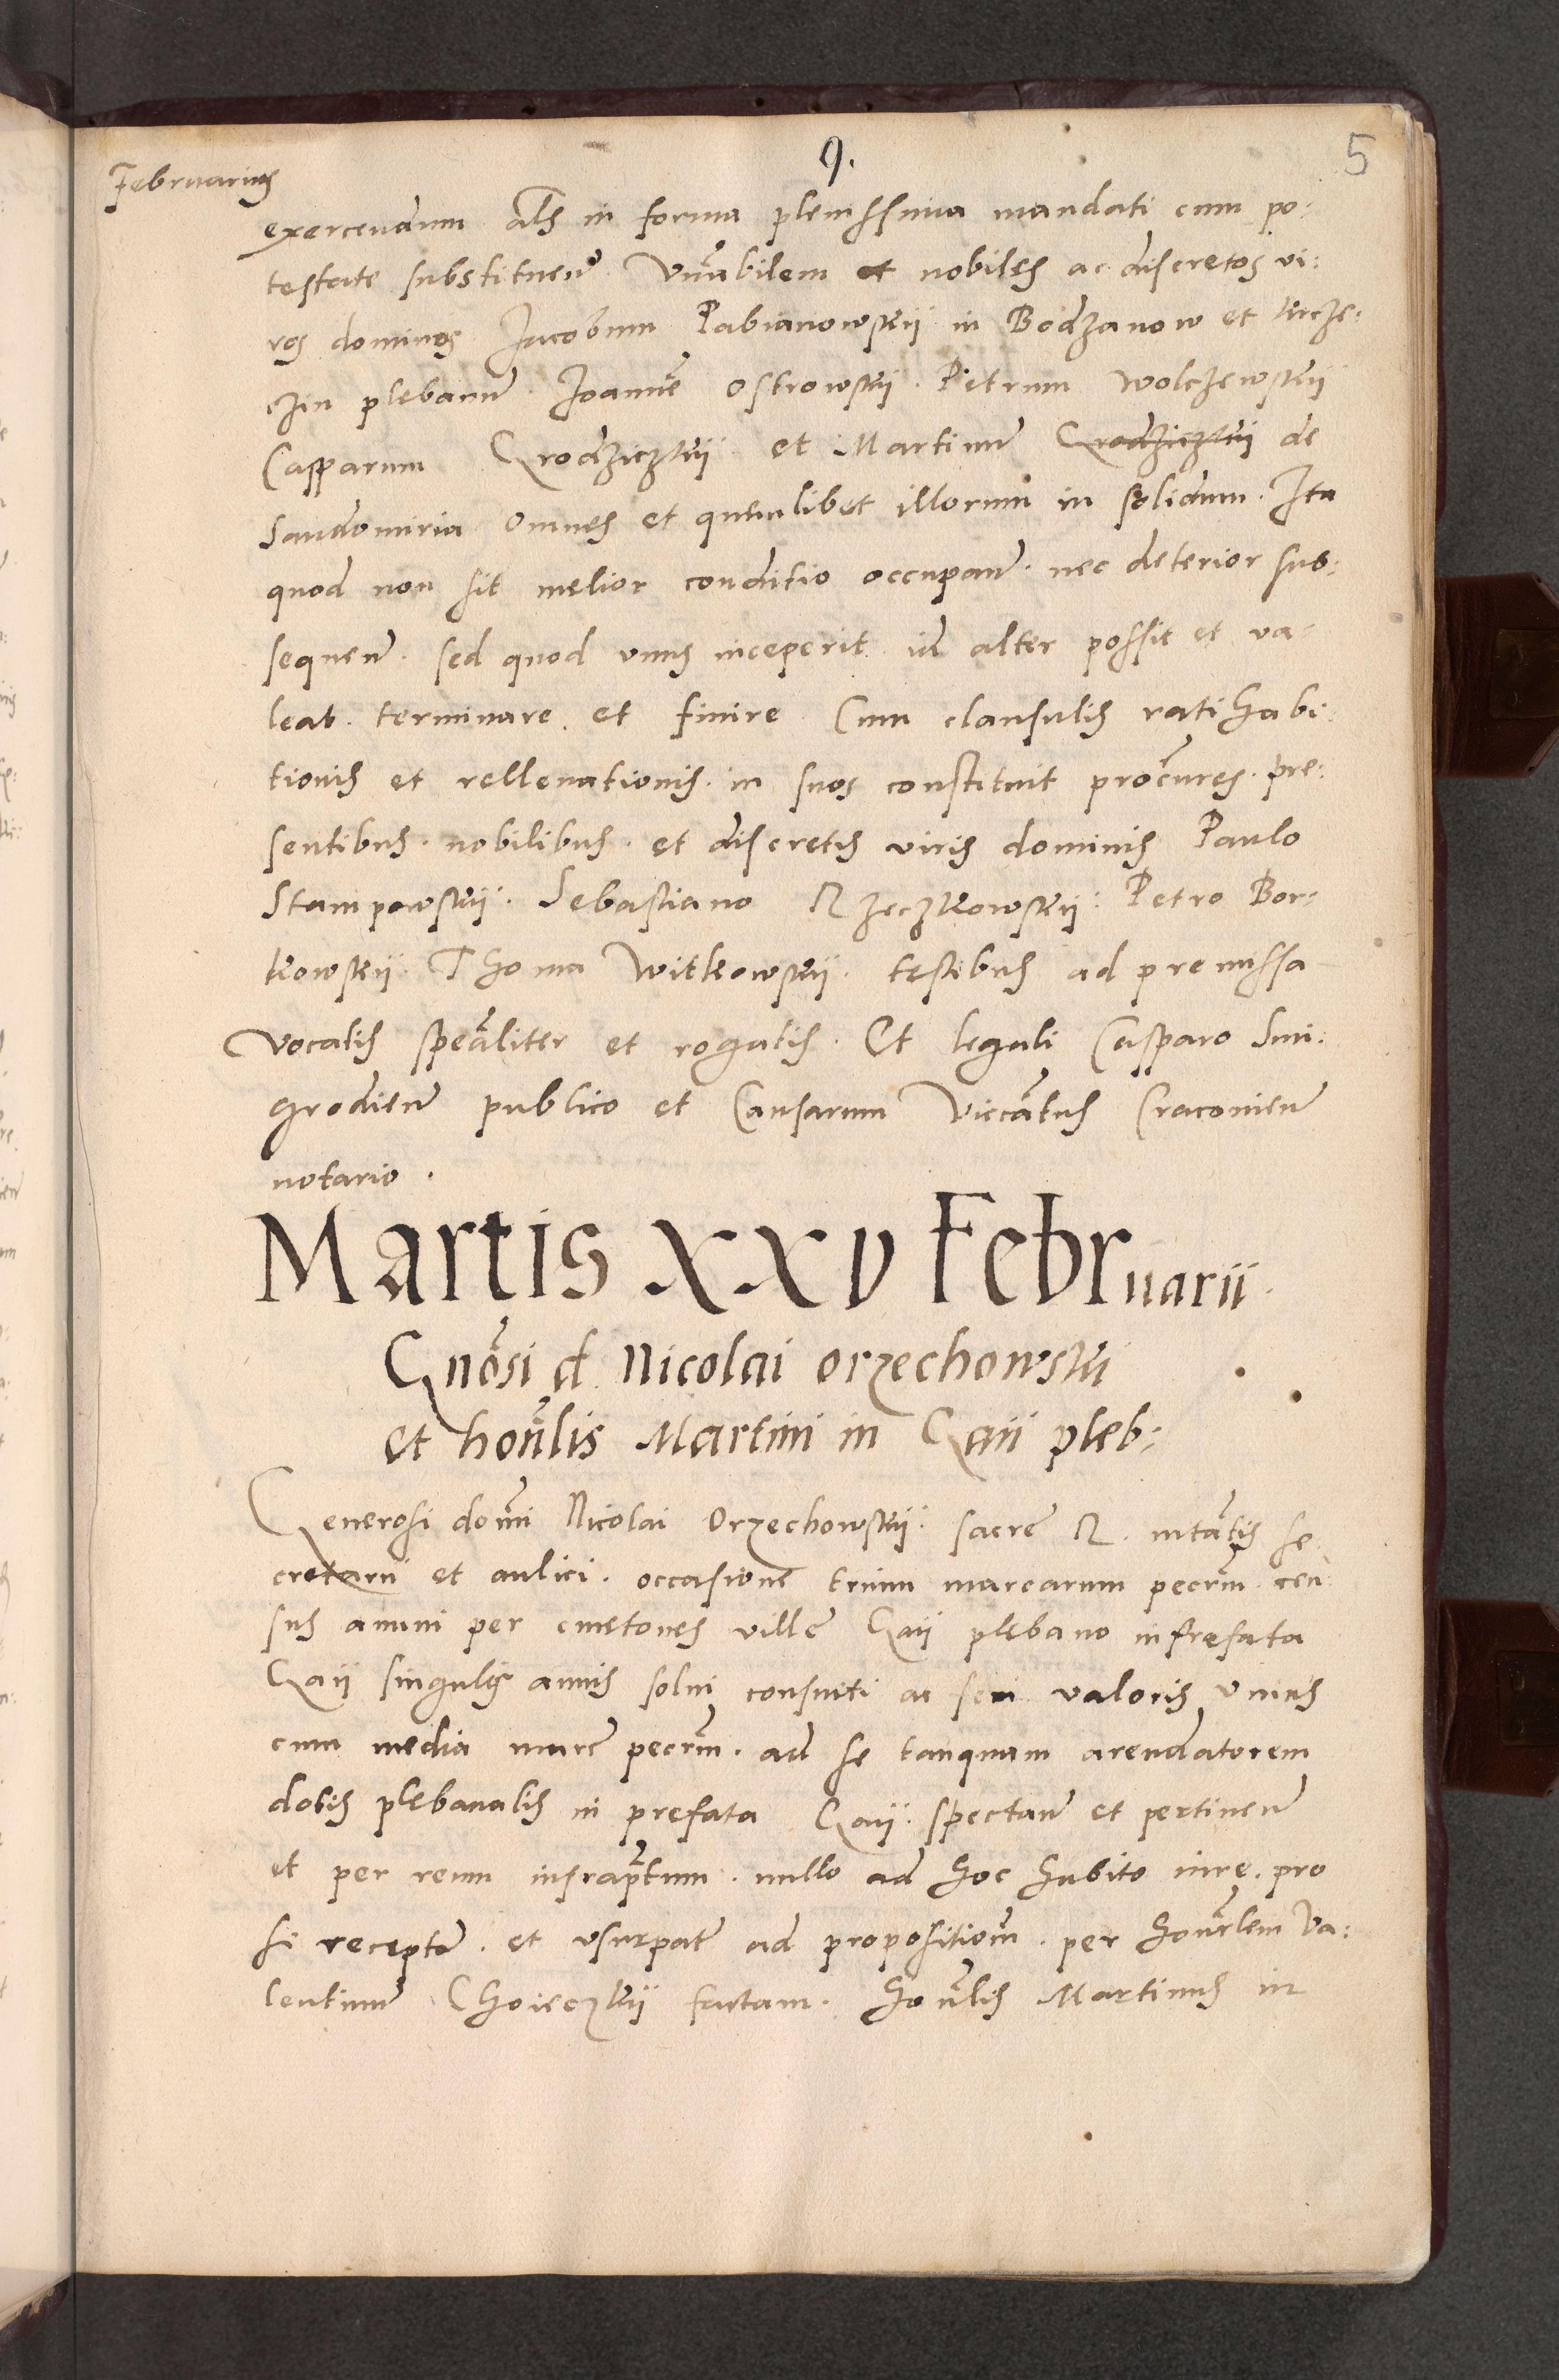 9.
5
Februarius
exercendum als in forma plenissima mandati cum po:
testate substituen Vnrabilem et nobiles ac discretos vi:
ros dominos Jacobum Pabianowskij in Bodzanow et
plebanu. Joanne Ostrowskij. Petrum Wolczewskij
Casparum Grodziczkij et Martinum Grodziczkij de
Sandomiria omnes et quemlibet illorum in solidum. Ita
quod non sit melior conditio occupan. nec deterior sub:
sequen. sed quod vnus inceperit id alter possit et va-
leat. terminare et finire Cum clausulis ratihabi:
tionis et relleuationis. in suos constituit procures. pre:
sentibus. nobilibus. et discretis viris dominis Paulo
Stampowskij. Sebastiano Rzeczkowskij. Petro Bor:
kowskij. Thoma Witkowskij. testibus ad premissa
vocatis spealiter et rogatis. Et legali Casparo Smi:
grodien publico et Causarum Viccatus Cracouien
notario.
Martis xxv Februarii
Gnosi d. Nicolai orzechowski
et honlis Martini in Gaii pleb:
Generosi domi Nicolai Orzechowskij. sacre R. mtatis se
cretarii et aulici. occasione trium marcarum pecrm. cen
sus annui per cmetones ville Gaij plebano in prefata
Gaij singulis annis solui consueti ac feni valoris vnius
cum media marc pecrm. ad se tanquam arendatorem
dotis plebanalis in prefata Gaij. spectan et pertinen
et per reum infraptum. nullo ad hoc habito iure. pro
se recepta. et vsurpat ad propositiom. per honrlem Va:
lentinum Choieczkij factam. honlis Martinus in